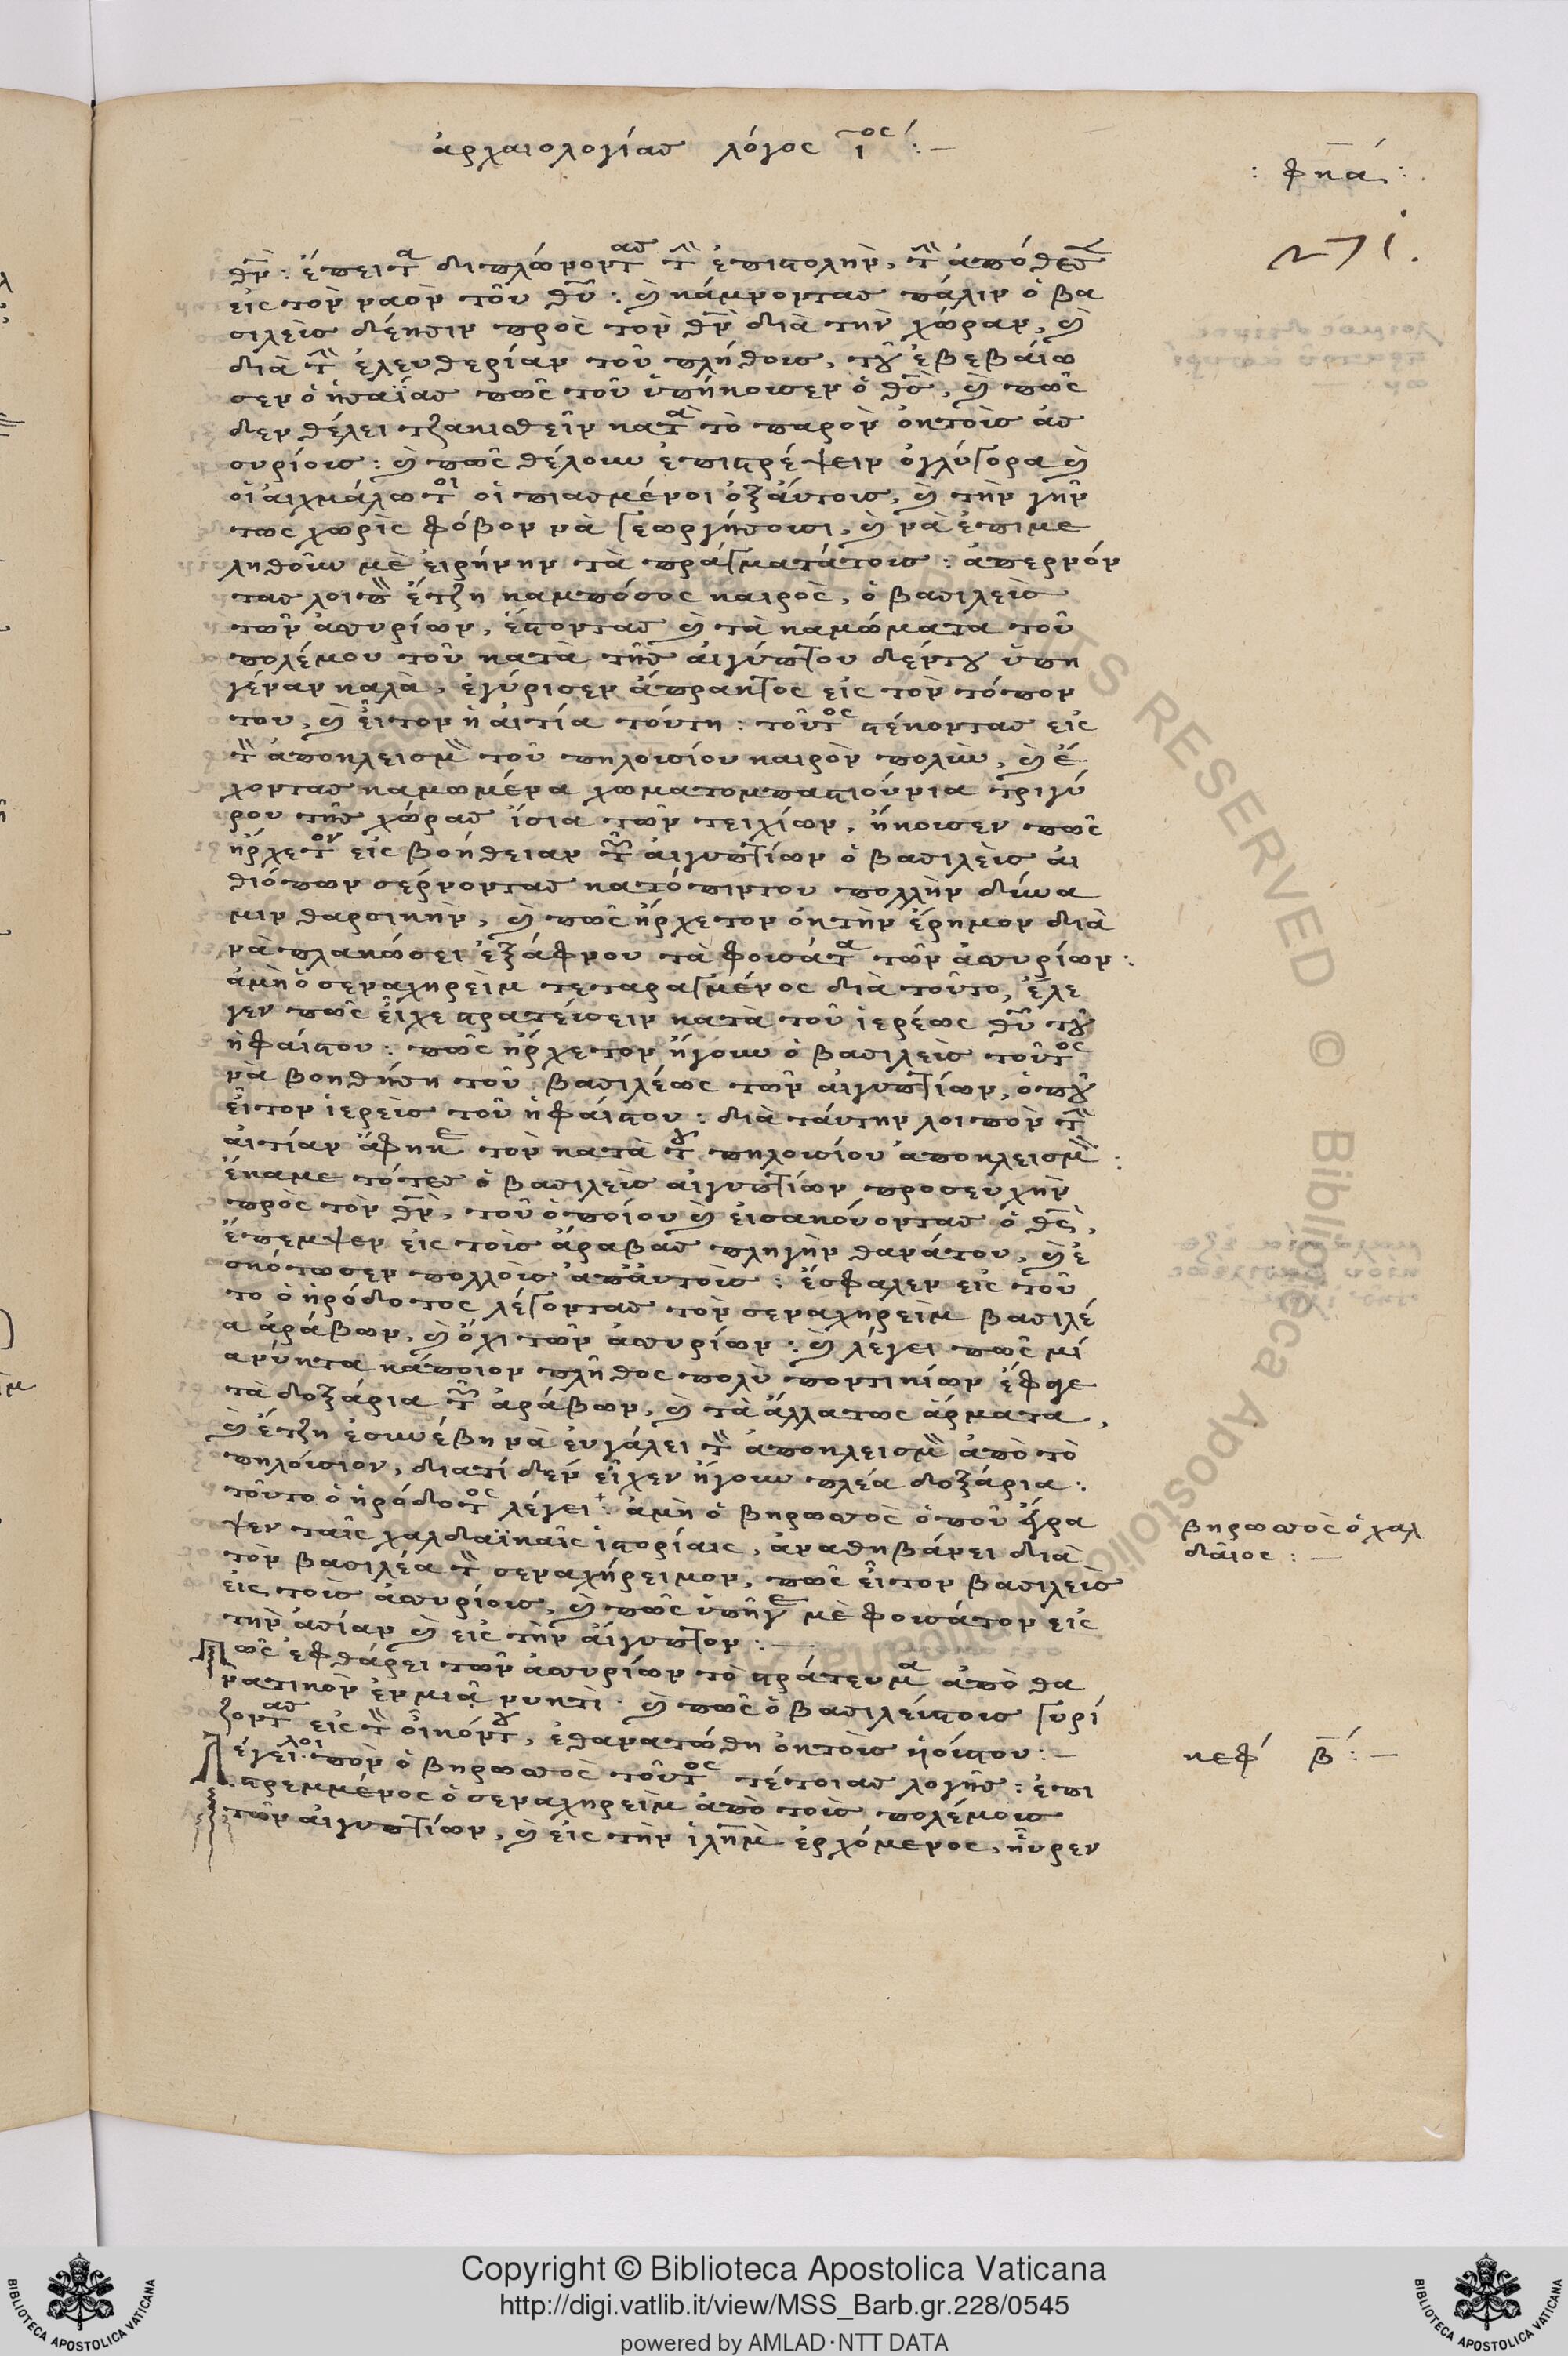 ἀρχαιολογίας λόγος ι^ος :—
: φκα :
271.
θν̅ : ἔπειτα διπλώνοντας τὴν ἐπιστολὴν, τὴν ἀπόθεσεν
εἰς τὸν ναὸν τοῦ θυ̅ : καὶ κάμνοντας πάλιν ὁ βα
σιλεὺς δέησιν πρὸς τὸν θν̅ διὰ τὴν χώραν, καὶ
διὰ τὴν ἐλευθερίαν τοῦ πλήθους, τοῦ ἐβεβαίω
σεν ὁ ἡσαΐας πῶς τοῦ ὑπήκουσεν ὁ θς̅, καὶ πῶς
δεν θέλει τζακισθεῖν κατὰ τὸ παρὸν ὀκτοὺς ἀσ
συρίους : καὶ πῶς θέλουν ἐπιστρέψειν ὀγλύγορα καὶ
οἱ αἰχμάλωτοι οἱ πιασμένοι ὀξαύτους, καὶ τὴν γῆν
τως χωρὶς φόβον νὰ γεωργήσουσι, καὶ νὰ ἐπιμε
ληθοῦν μὲ εἰρήνην τὰ πράγματάτους : ἀπερνόν
τας λοιπὸν ἔτζη καμπόσος καιρὸς, ὁ βασιλεὺς
τῶν ἀσσυρίων, ἔστοντας καὶ τὰ καμώματα τοῦ
πολέμου τοῦ κατὰ τῆς αἰγύπτου δέντου ὑπη
γέναν καλὰ, ἐγύρισεν ἄπρακτος εἰς τὸν τόπον
του, καὶ εἶτον ἡ αἰτία τούτη : τοῦτος στέκοντας εἰς
τὸν ἀποκλεισμὸν τοῦ πηλουσίου καιρὸν πολὺν, καὶ ἔ
χοντας καμωμένα χωματομπαστιούνια τριγύ
ρου τῆς χώρας ἴσια τῶν τειχίων, ἤκουσεν πῶς
ἤρχετον εἰς βοήθειαν τῶν αἰγυπτίων ὁ βασιλεὺς αἰ
θιόπων σέρνοντας κατόπιντου πολλὴν δύνα
μιν θαρσικὴν, καὶ πῶς ἤρχετον ὀκτὴν ἔρημον διὰ
νὰ πλακώσει ἐξάφνου τὰ φουσάτα τῶν ἀσσυρίων :
ἀμὴ ὁ σεναχηρεὶμ τεταραγμένος διὰ τοῦτο, ἔλε
γεν πῶς εἶχε στρατεύσειν κατὰ τοῦ ἱερέως θυ̅ τοῦ
ἡφαίστου : πῶς ἤρχετον ἤγουν ὁ βασιλεὺς τοῦτος
νὰ βοηθήση τοῦ βασιλέως τῶν αἰγυπτίων, ὁποῦ
εἶτον ἱερεὺς τοῦ ἡφαίστου : διὰ ταύτην λοιπὸν τὴν
αἰτίαν ἄφηκε τὸν κατὰ τοῦ πηλουσίου ἀποκλεισμὸν :
ἔκαμε τότες ὁ βασιλεὺς αἰγυπτίων προσευχὴν
πρὸς τὸν θν̅, τοῦ ὁποίου καὶ εἰσακούοντας ὁ θς̅,
ἔπεμψεν εἰς τοὺς ἄραβας πληγὴν θανάτου, καὶ ἐ
σκότωσεν πολλοὺς ἀπ᾽ αὐτοὺς : ἔσφαλεν εἰς τοῦ
το ὁ ἡρόδοτος λέγοντας τὸν σεναχηρεὶμ βασιλέ
α ἀράβων, καὶ ὄχι τῶν ἀσσυρίων : καὶ λέγει πῶς μί
α νύκτα κάποιον πλῆθος πολὺ ποντικίων ἔφαγε
τὰ δοξάρια τῶν ἀράβων, καὶ τὰ ἄλλατως ἄρματα,
καὶ ἔτζη ἐσυνέβη νὰ εὐγάλει τὸν ἀποκλεισμὸν ἀπὸ τὸ
πηλούσιον, διατί δὲν εἶχεν ἤγουν πλέα δοξάρια :
τοῦτο ὁ ἡρόδοτος λέγει : ἀμὴ ὁ βηρωσσὸς ὁποῦ ἔγρα
ψεν ταῖς χαλδαϊκαῖς ἱστορίαις, ἀναθηβάνει διὰ
τὸν βασιλέα τὸν σεναχήρειμον, πῶς εἶτον βασιλεὺς
εἰς τοὺς ἀσσυρίους, καὶ πῶς ὑπῆγε μὲ φουσάτον εἰς
τὴν ἀσίαν καὶ εἰς τὴν αἴγυπτον :—
βηρωσσὸς ὁ χαλ
δαῖος :—
Πῶς ἐφθάρει τῶν ἀσσυρίων τὸ στράτευμα ἀπὸ θα
νατικὸν ἐν μιᾷ νυκτὶ. καὶ πῶς ὁ βασιλεύςτους γυρί
ζοντας εἰς τὸν οἶκόντου, ἐθανατώθη ὀκτοὺς υἱούςτου :—
κεφ β :—
Λέγει λοιπὸν ὁ βηρωσσὸς τοῦτος τέτοιας λογῆς : ἐπι
στρεμμένος ὁ σεναχηρεὶμ ἀπὸ τοὺς πολέμους
τῶν αἰγυπτίων, καὶ εἰς τὴν ἱλημ̅ ἐρχόμενος, ηὗρεν
Copyright © Biblioteca Apostolica Vaticana
http://digi.vatlib.it/view/MSS_Barb.gr.228/0545
powered by AMLAD·NTT DATA